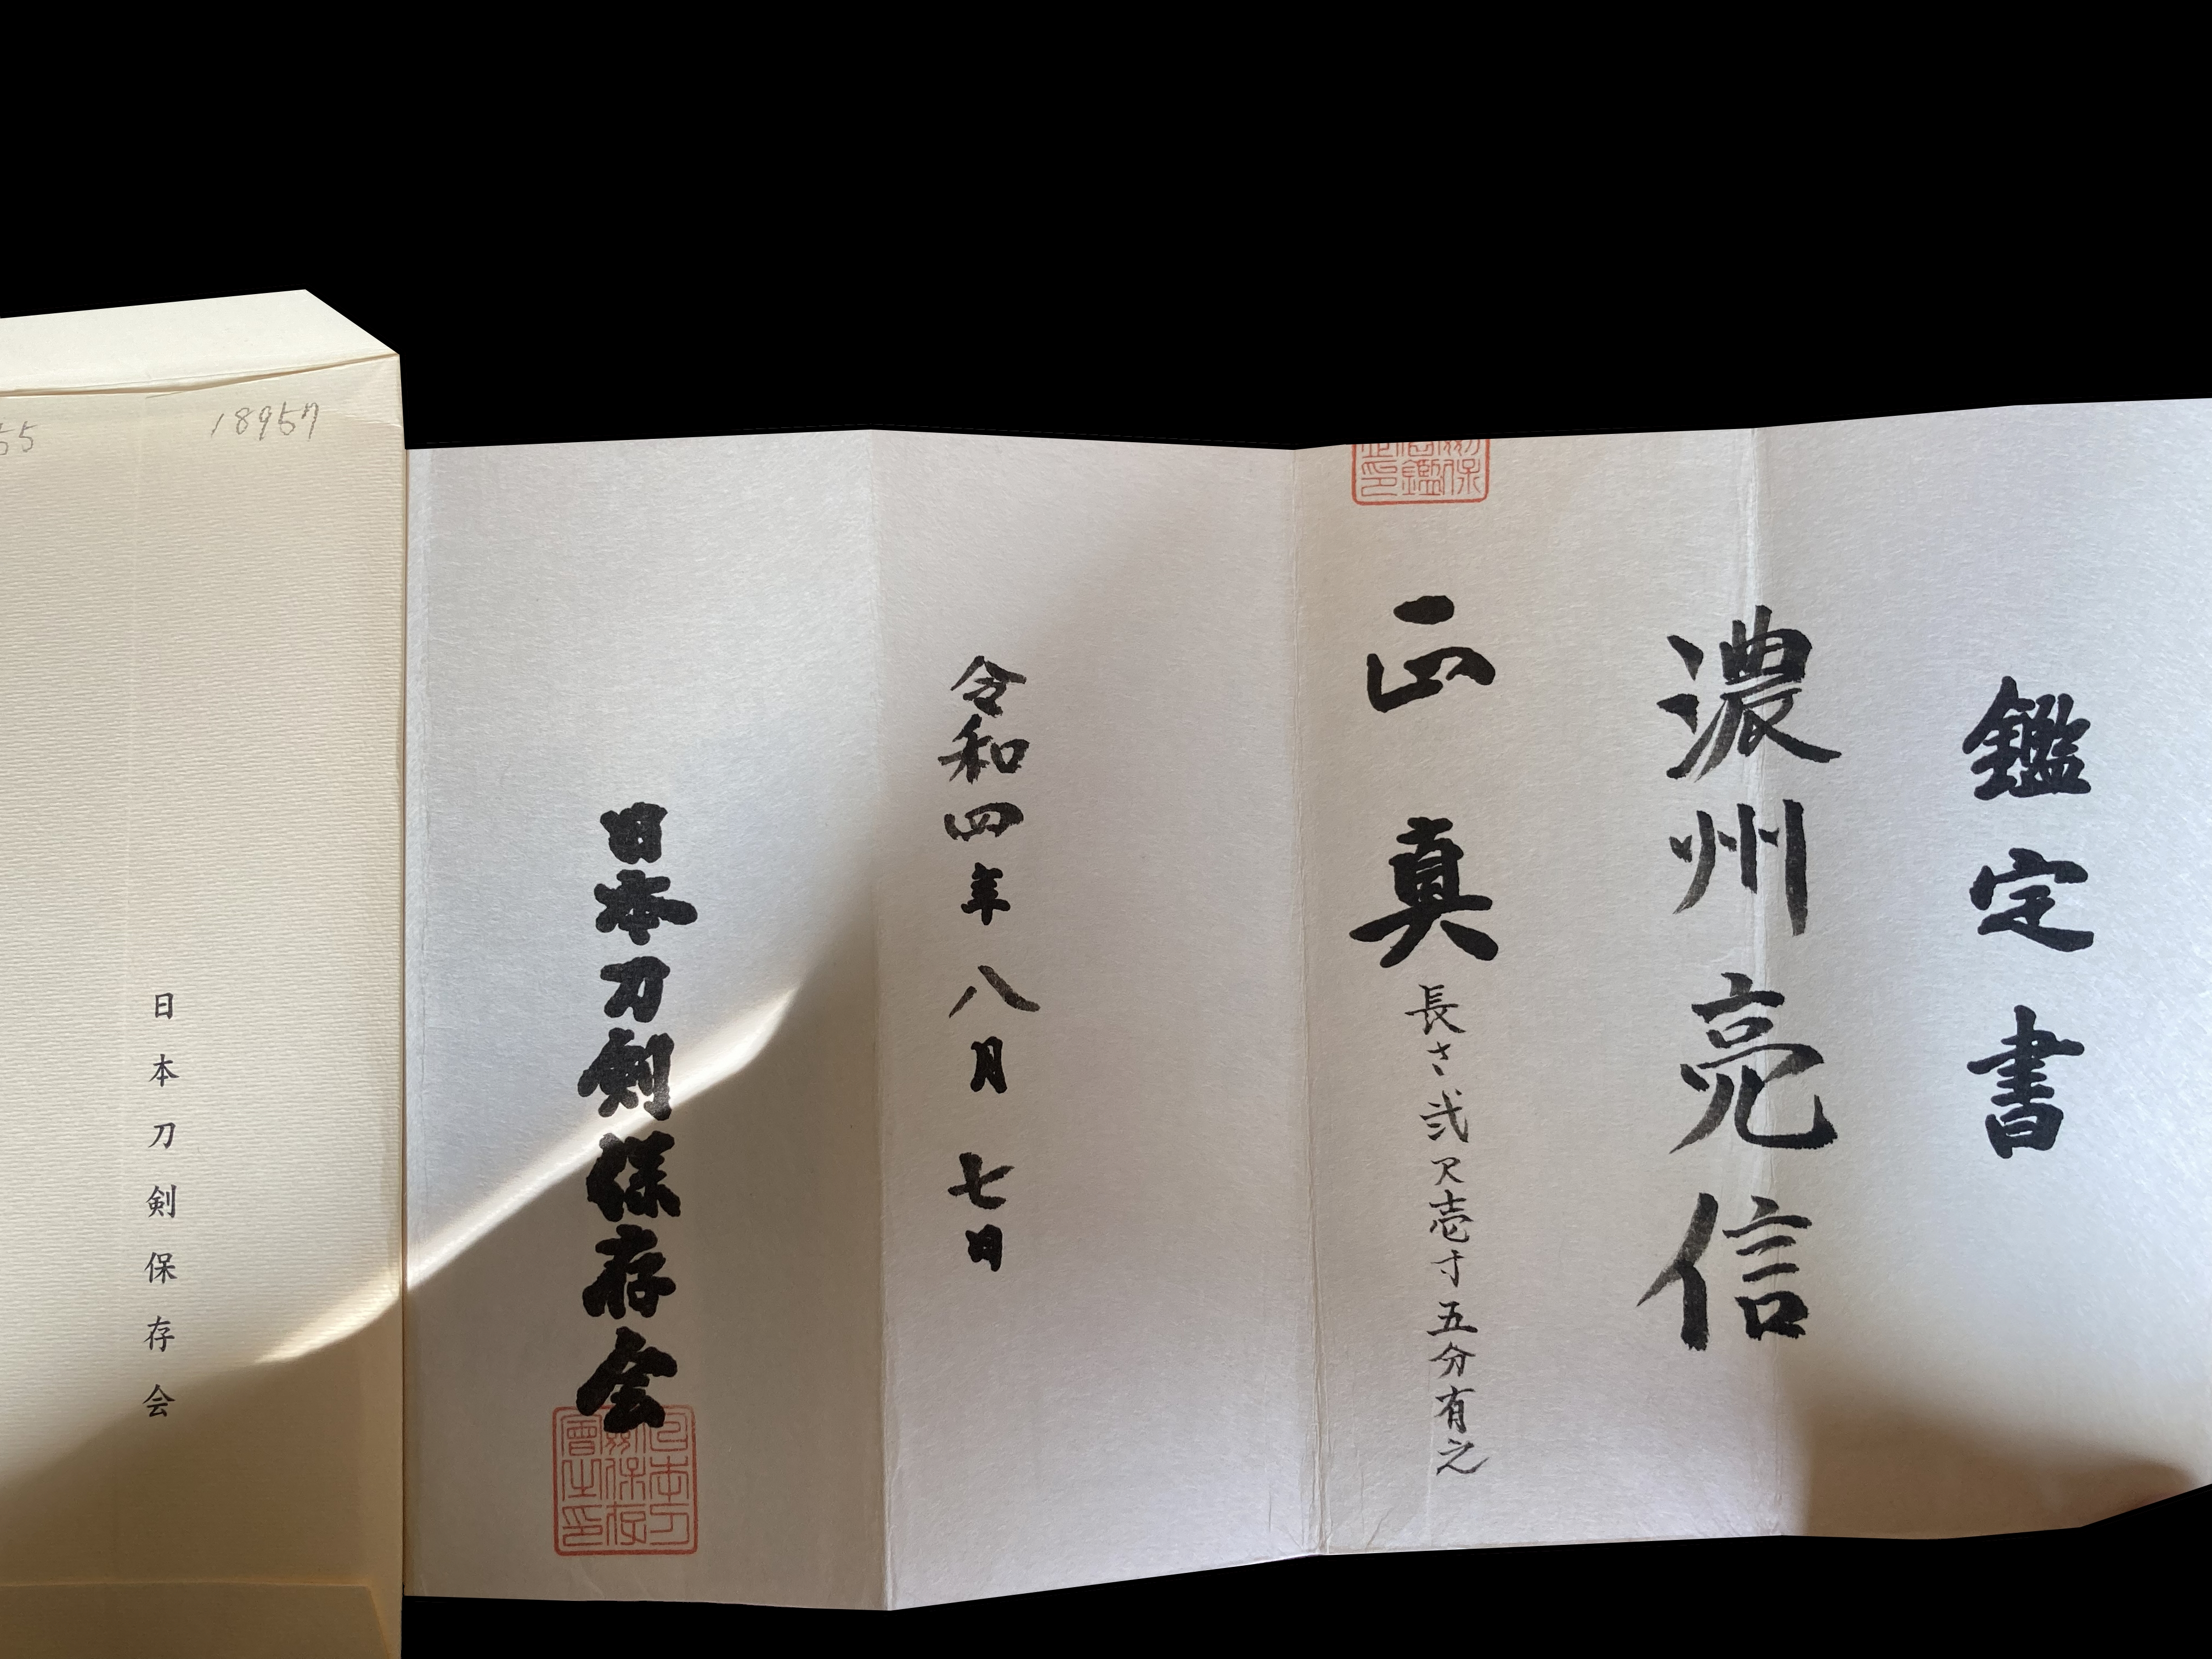 鑑定書
濃州亮信
正真 長さ弐尺壱寸五分有之
令和四年八月七日
日本刀剣保存会
日本刀剣保存会
55
18957